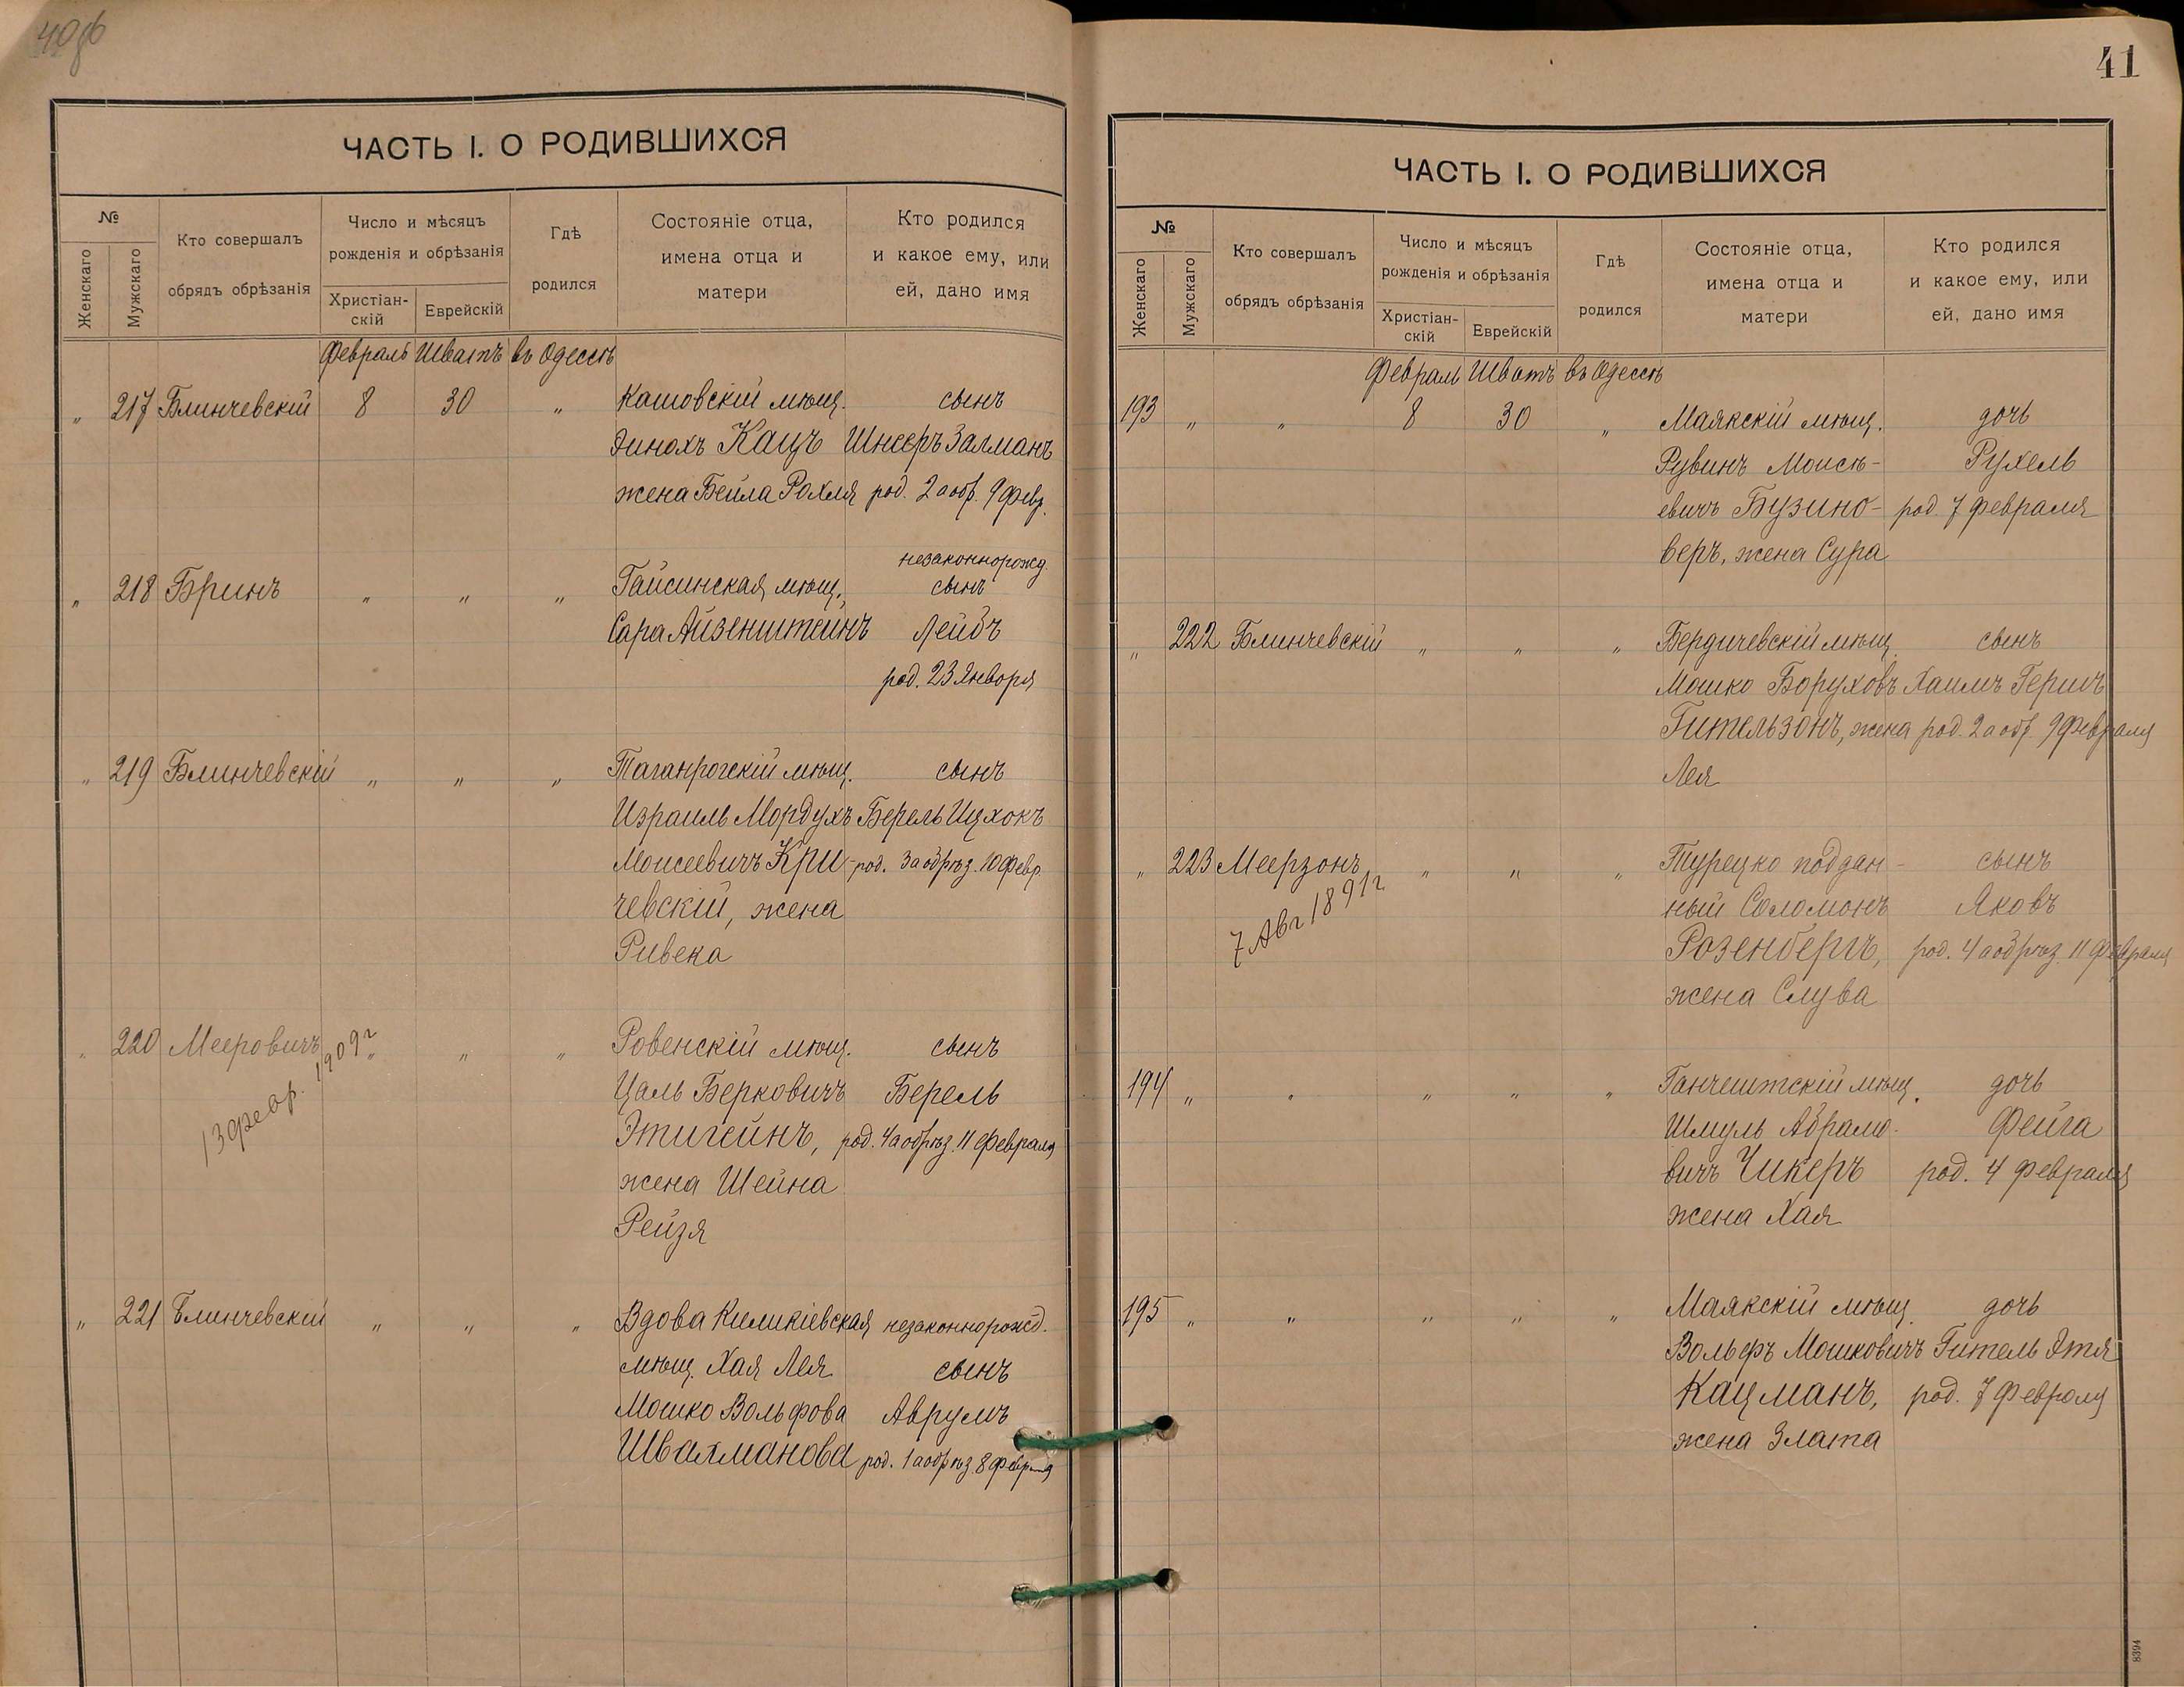 40об
ЧАСТЬ I. О РОДИВШИХСЯ
№
Женскаго
Мужскаго
Кто совершалъ
обрядъ обрѣзанія
Число и мѣсяцъ
рожденія и обрѣзанія
Христіан-
скій
Еврейскій
Гдѣ
родился
Состояніе отца,
имена отца и
матери
Кто родился
и какое ему, или
ей, дано имя
Февраль Шватъ въ Одессѣ
„ 217 Блинчевскій 8 30 „ Кашовскій мѣщ. сынъ
Энохъ Кацъ Шнееръ Залманъ
жена Бейла Рохля род. 2 а обр. 9 февр.
незаконнорожд.
„ 218 Бринъ „ „ „ Гайсинская мѣщ., сынъ
Сара Айзенштейнъ Лейбъ
род. 23 Января
„ 219 Блинчевскій „ „ „ Таганрогскій мѣщ. сынъ
Израиль Мордухъ Берель Ицхокъ
Моисеевичъ Кри- род. 3 а обрѣз. 10 февр.
чевскій, жена
Ривека
„ 220 Мееровичъ „ „ „ Ровенскій мѣщ. сынъ
13 февр. 1909 г
Цаль Берковичъ Берель
Этигейнъ, род. 4 а обрѣз. 11 февраля
жена Шейна
Рейзя
„ 221 Блинчевскій „ „ „ Вдова Киликіевская незаконнорожд.
мѣщ. Хая Лея сынъ
Мошко Вольфова Аврумъ
Швалманова род. 1 а обрѣз. 8 февраля
41
ЧАСТЬ I. О РОДИВШИХСЯ
№
Женскаго
Мужскаго
Кто совершалъ
обрядъ обрѣзанія
Число и мѣсяцъ
рожденія и обрѣзанія
Христіан-
скій
Еврейскій
Гдѣ
родился
Состояніе отца,
имена отца и
матери
Кто родился
и какое ему, или
ей, дано имя
Февраль Шватъ въ Одессѣ
193 „ „ 8 30 „ Маякскій мѣщ. дочь
Рувинъ Моисѣ- Рухель
евичъ Бузино- род. 7 февраля
веръ, жена Сура
„ 222 Блинчевскій „ „ „ Бердичевскій мѣщ. сынъ
Мошко Боруховъ Хаимъ Гершъ
Гительзонъ, жена род. 2 а обр. 9 февраля
Лея
„ 223 Меерзонъ „ „ „ Турецко поддан- сынъ
7 Авг 1891 г
ный Соломонъ Яковъ
Розенбергъ, род. 4 а обрѣз. 11 февраля
жена Слува
194 „ „ „ „ „ Ганчештскій мѣщ. дочь
Шмуль Абрамо- Фейга
вичъ Чикеръ род. 4 февраля
жена Хая
195 „ „ „ „ „ Маякскій мѣщ. дочь
Вольфъ Мошковичъ Гитель Этя
Кацманъ, род. 7 февраля
жена Злата
8394